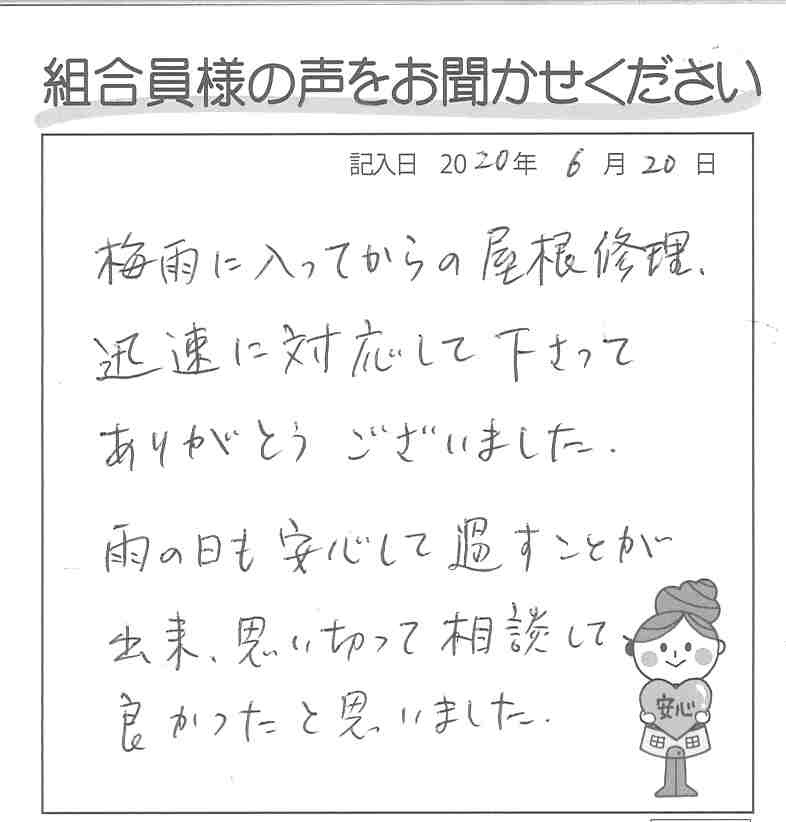 組合員様の声をお聞かせください
記入日 2020年 6月20日
梅雨に入ってからの屋根修理、
迅速に対応して下さって
ありがとうございました.
雨の日も安心して過すことが
出来、思い切って相談して
良かったと思いました.
安心